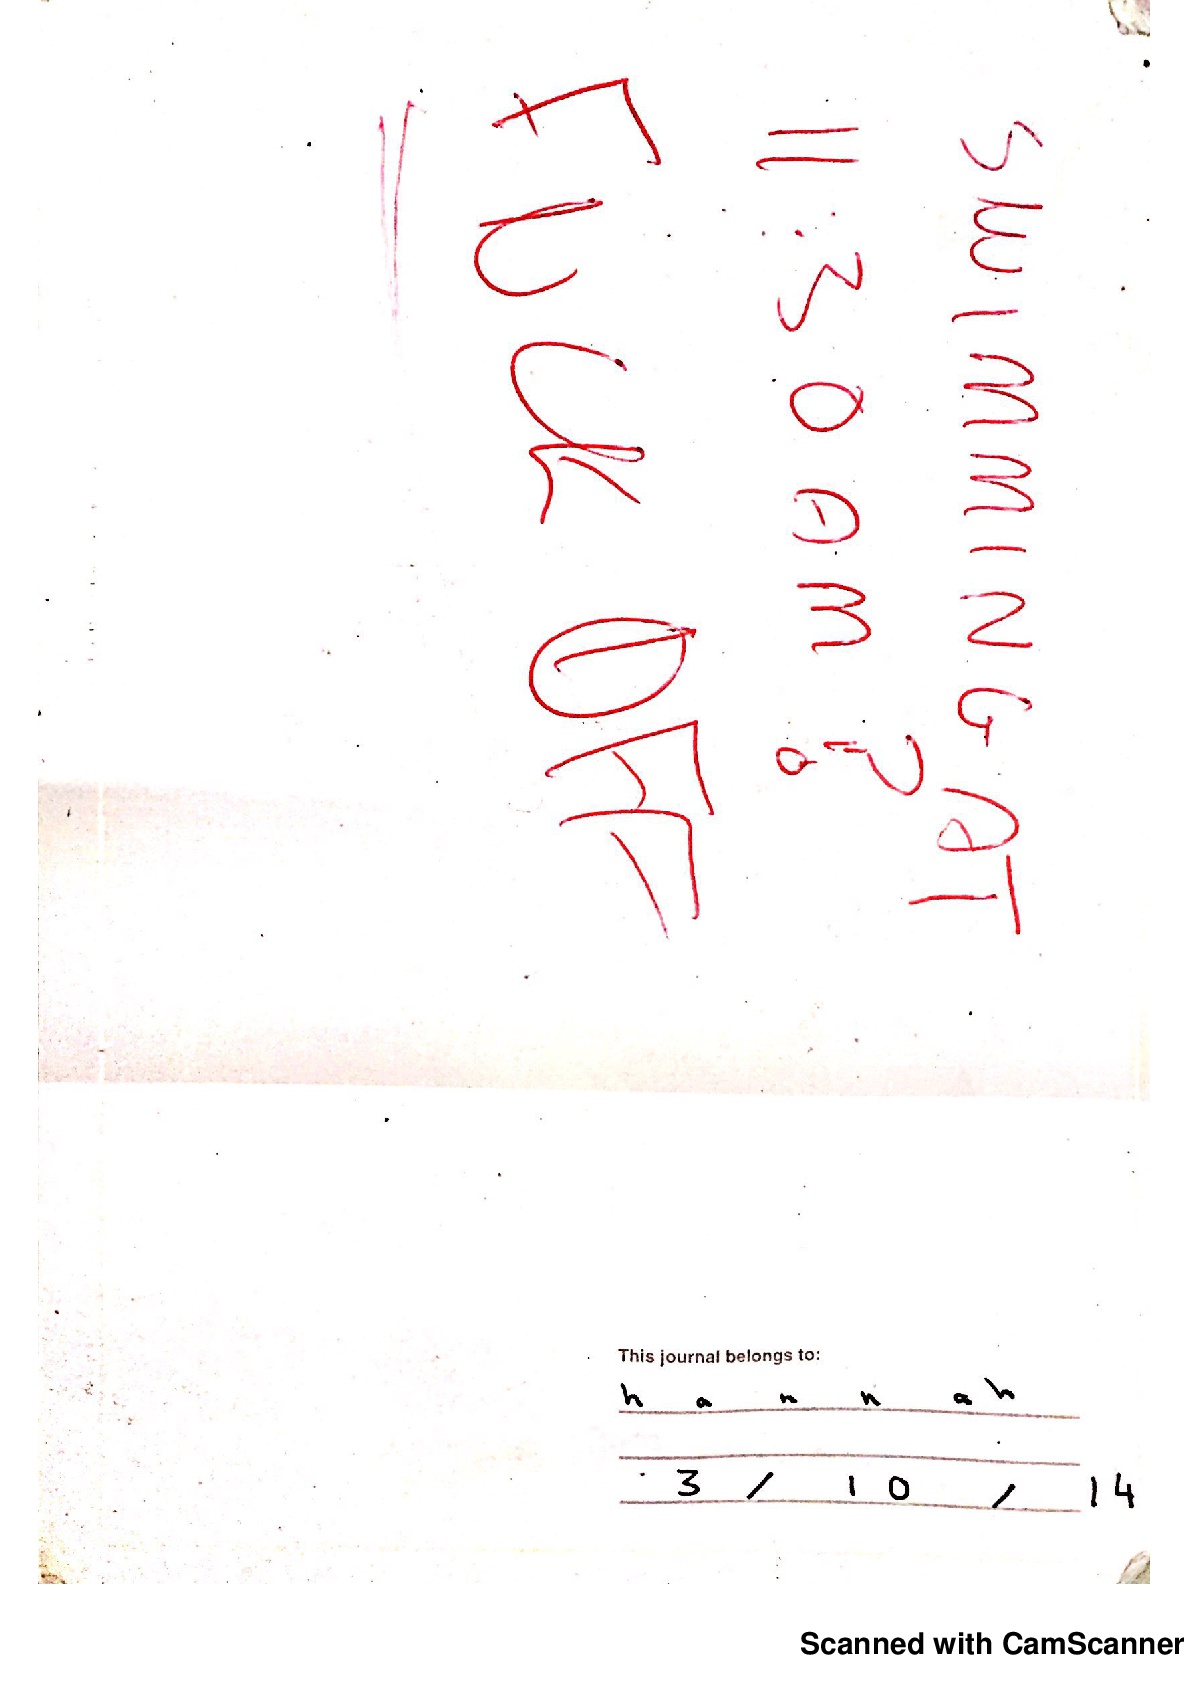 SWIMMING AT
11:30 AM?
FUCK OFF
This journal belongs to:
hannah
3/10/14
Scanned with CamScanner